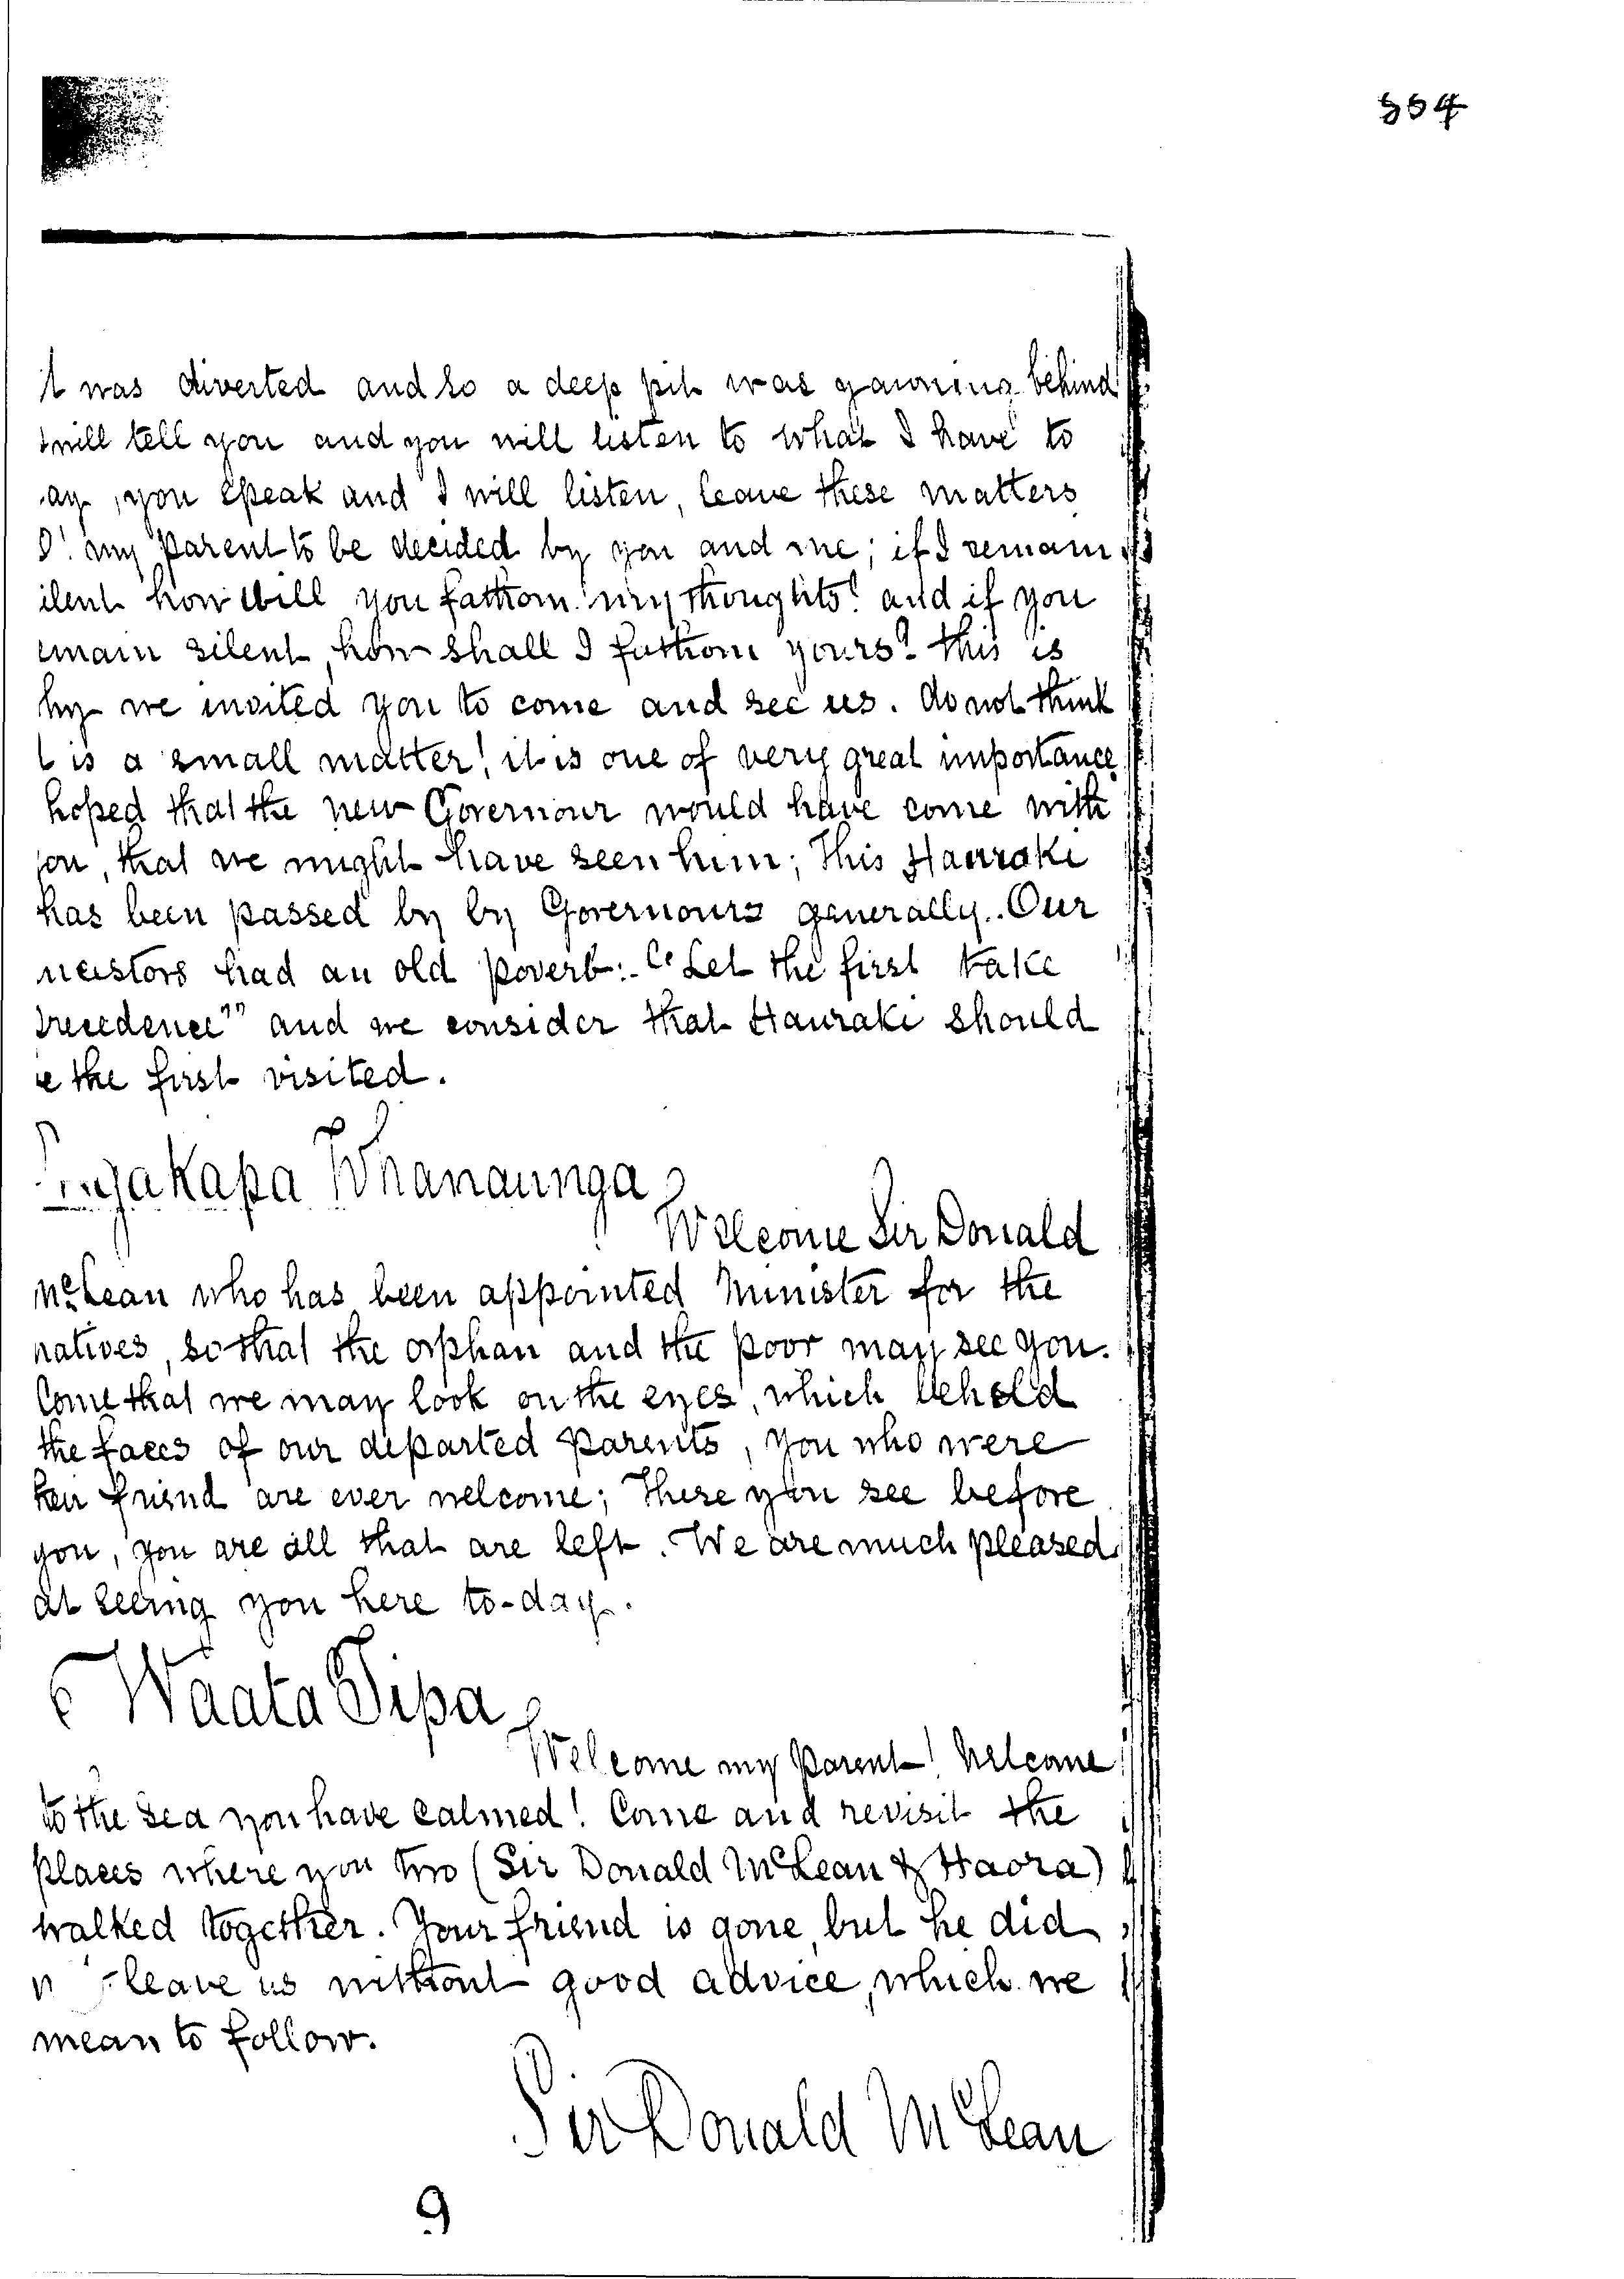 354
t was diverted and so a deep pit was yawning behind
will tell you and you will listen to what I have to
ay, you speak and I will listen, leave these matters
O! my Parent to be decided by you and me; if I remain
ilent how will you fathom my thoughts? and if you
emain silent, how shall I fathom yours? this is
hy we invited you to come and see us. do not think
t is a small matter! it is one of very great importance
hoped that the new Governour would have come with
you, that we might have seen him; This Hauraki
has been passed by by Governours generally. Our
ncestors had an old Poverb:- "Let the first take
precedence"" and we consider that Hauraki should
e the first visited.
Whanaunga
Welcome Sir Donald
McLean who has been appointed Minister for the
natives, so that the orphan and the poor may see you.
Come that we may look on the eyes, which behold
the faces of our departed Parents, you who were
their friend are ever welcome; These you see before
you, you are all that are left. We are much pleased
at seeing you here to-day.
Waata Tipa
Welcome my Parent! Welcome
to the sea you have calmed! Come and revisit the
places where you two (Sir Donald McLean & Haora)
walked together. Your friend is gone, but he did
leave us without good advice, which we
mean to follow.
Sir Donald McLean
9